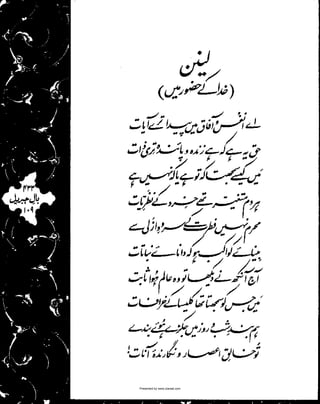 لینن
(خدا کے حضور میں)
اے انفس و آفاق میں پیدا ترے آیات
حق یہ ہے کہ ہے زندہ و پائندہ تری ذات
میں کیسے سمجھتا کہ تو ہے یا کہ نہیں ہے
ہر دم متغیر تھے خرد کے نظریات
محرم نہیں فطرت کے سرودِ ازلی سے
بینائے کواکب ہو کہ دانائے نباتات
آج آنکھ نے دیکھا تو وہ عالم ہوا ثابت
میں جس کو سمجھتا تھا کلیسا کے خرافات
ہم بندِ شب و روز میں جکڑے ہوئے بندے
تو خالقِ اعصار و نگارندۂ آنات!
۴۳۳
بالِ جبریل
۱۰۹
Presented by www.ziaraat.com